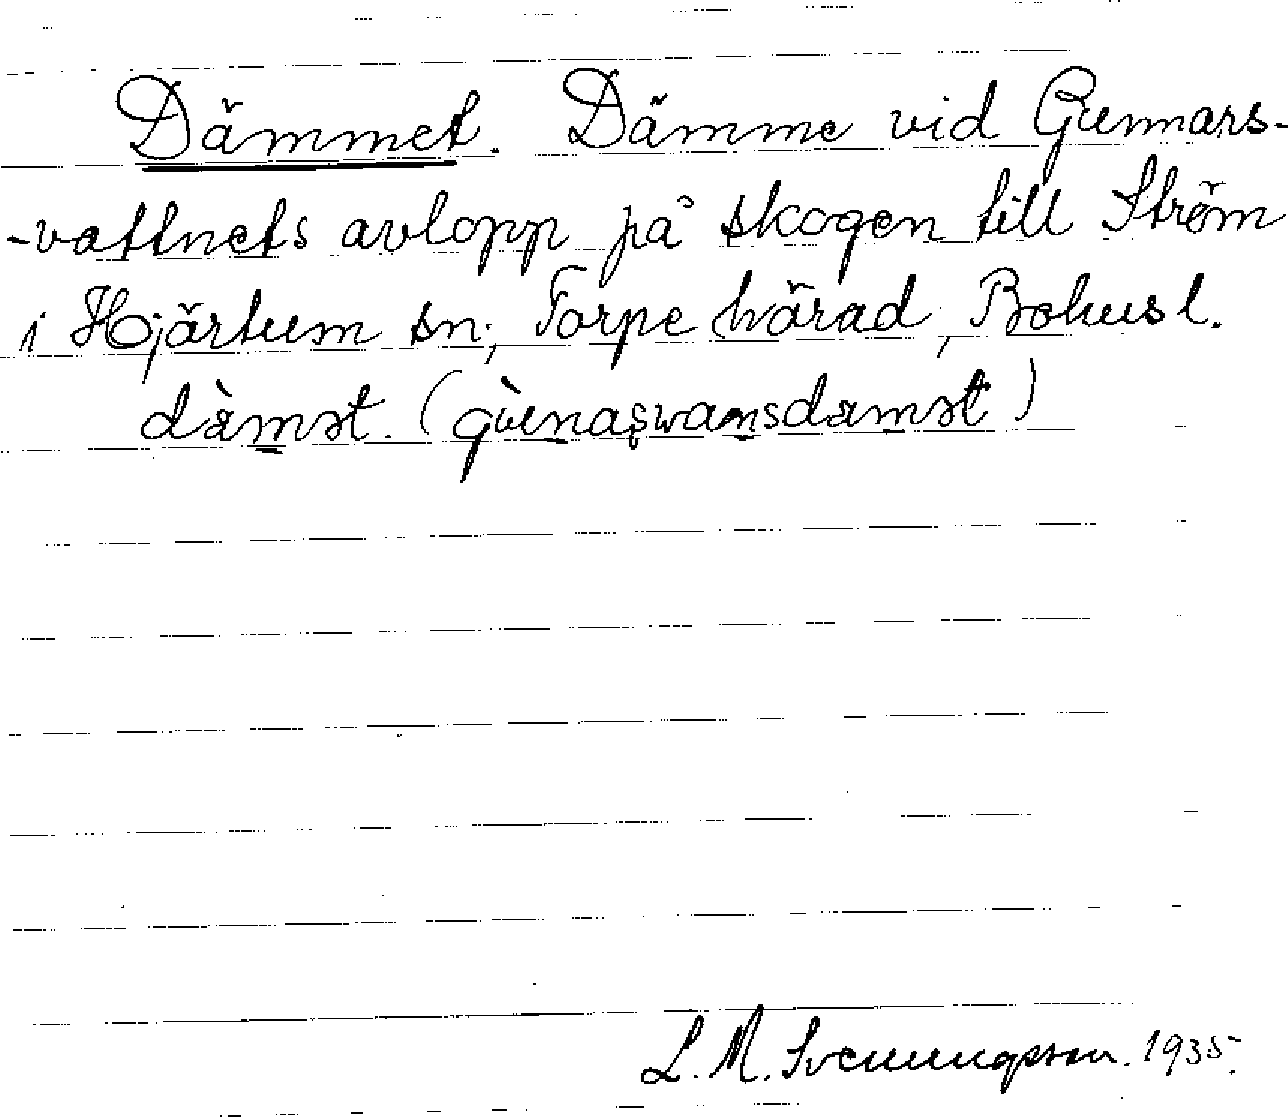 Dämmet. Dämme vid Gunnars-
-vattnets avlopp på skogen till Ström
i Hjärtum sn; Torpe härad, Bohusl.
dàmət. (gùnaşwamsdamət)
L. M. Svenungsson. 1935.